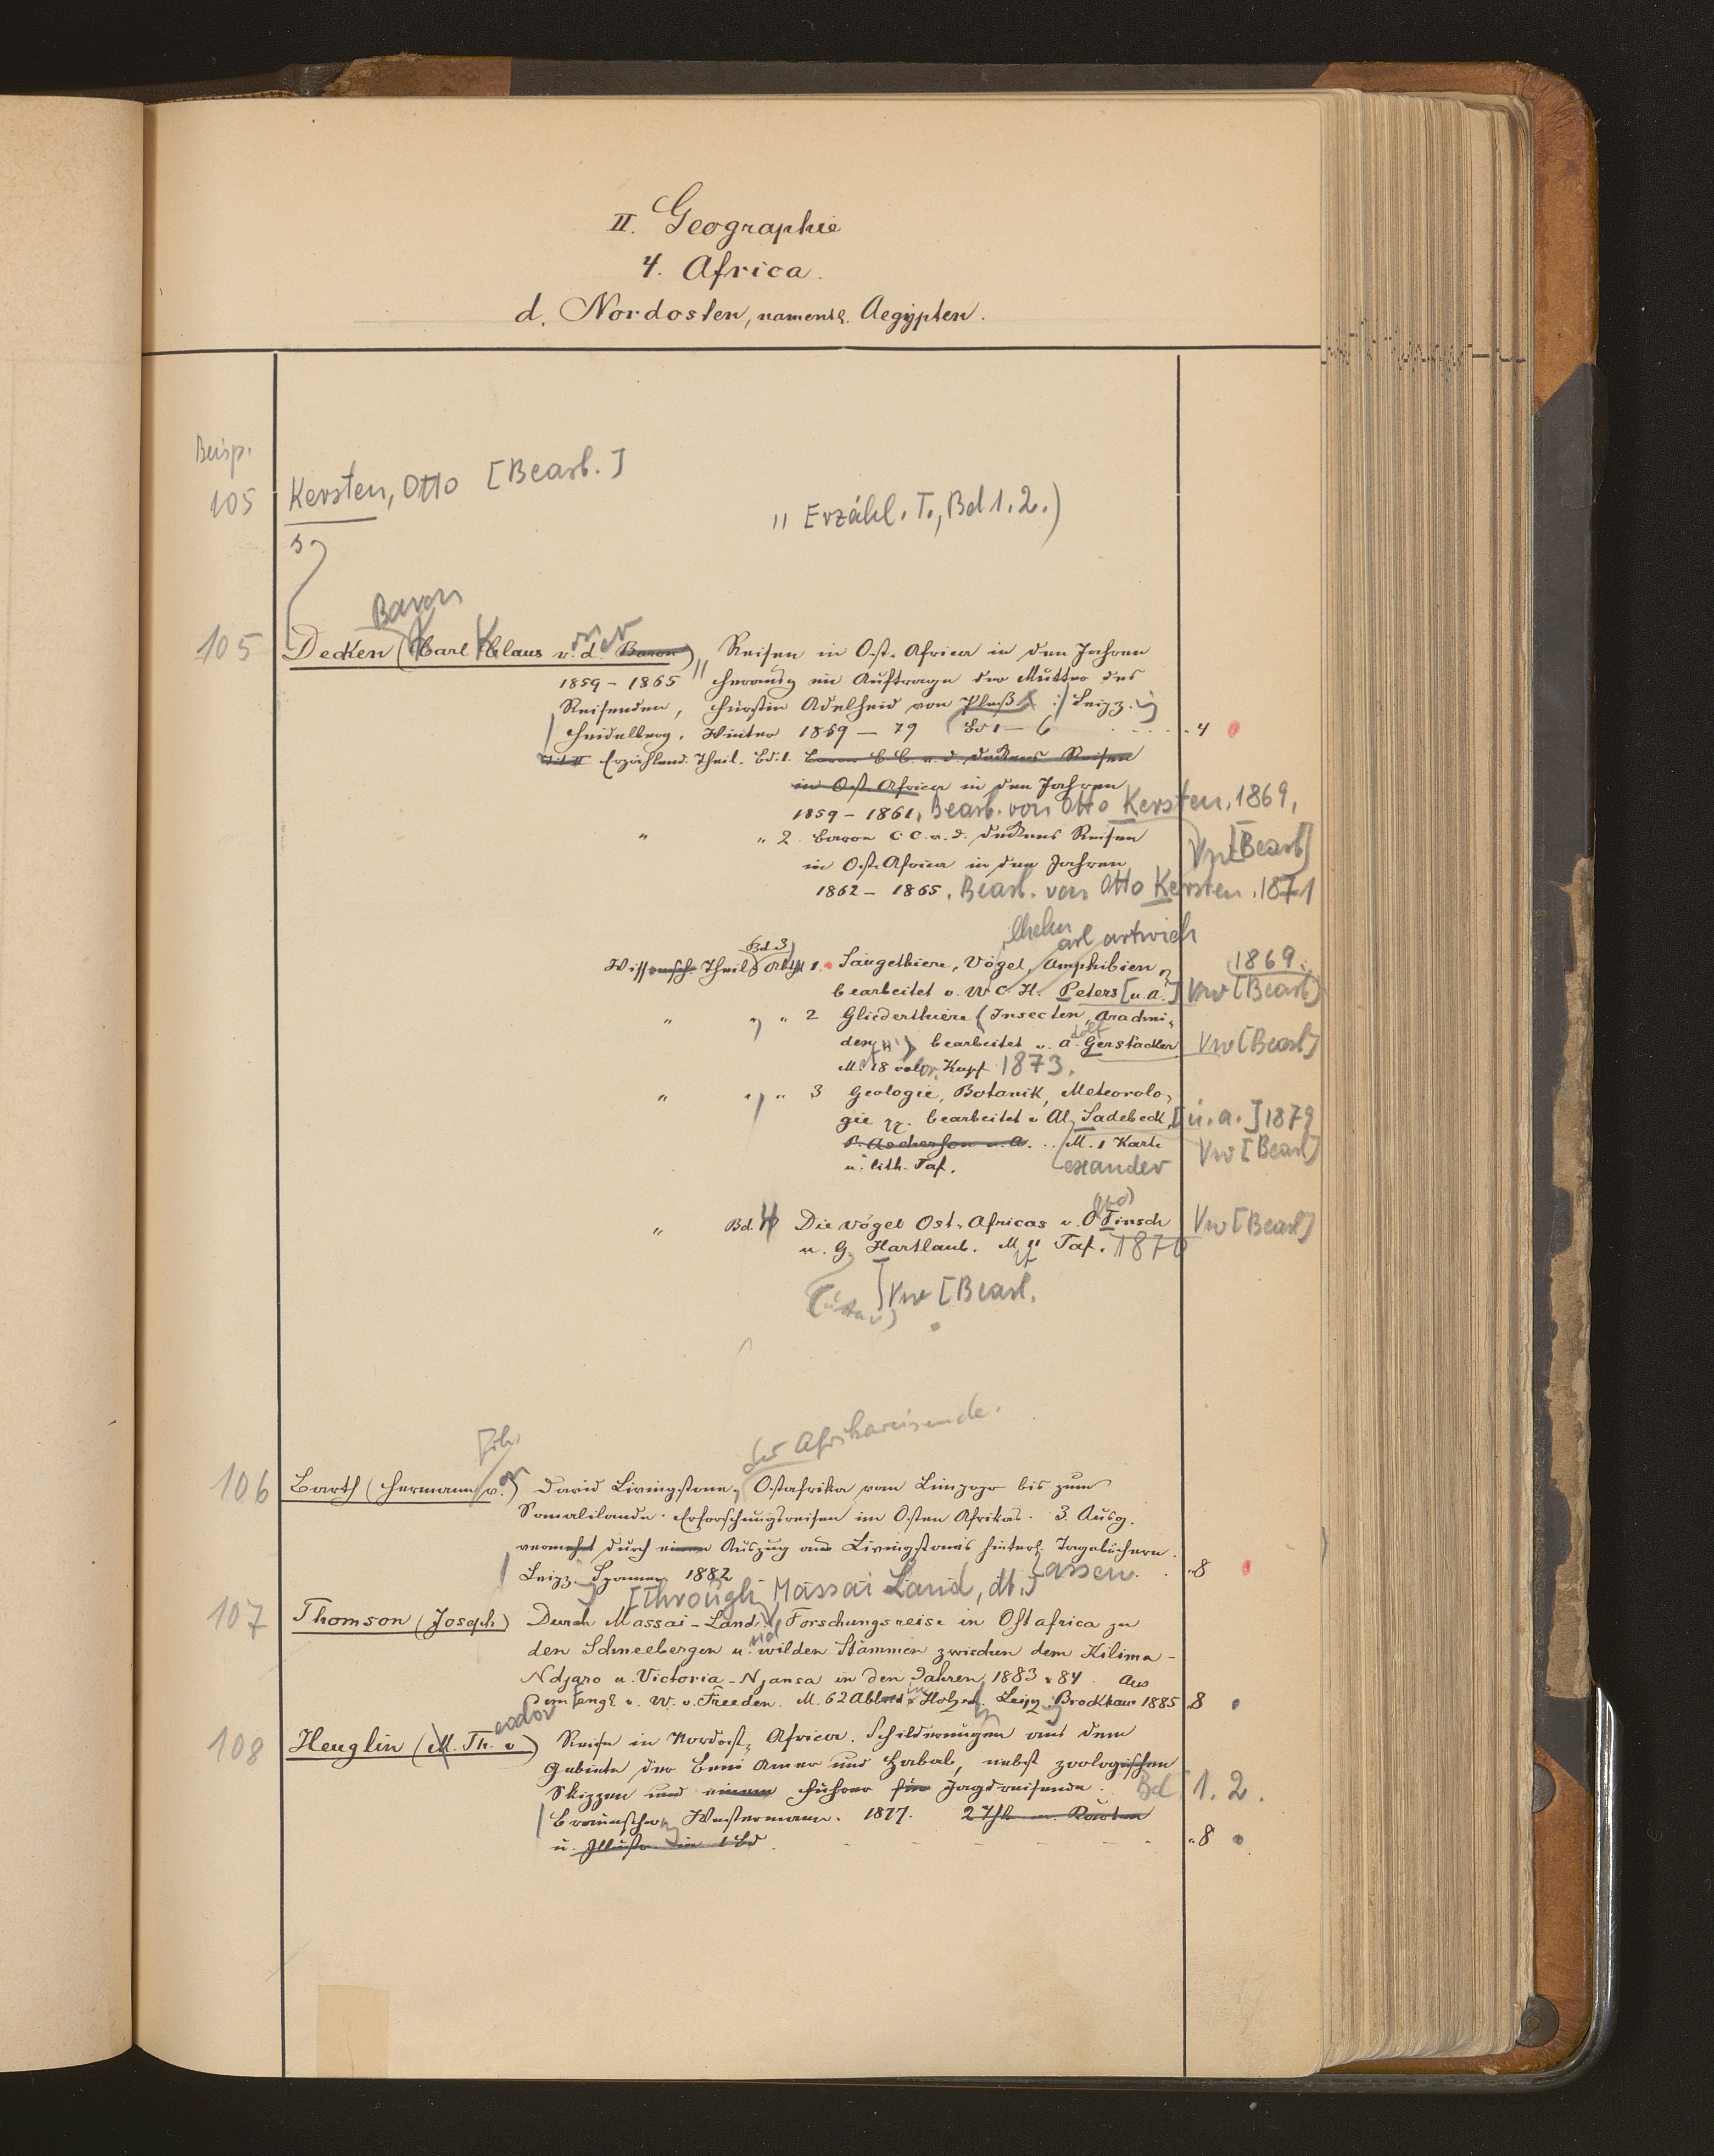 II. Geographie
4. Africa.
d. Nordosten, namentl. Aegypten.
Beisp.
105 Kersten, Otto [Bearb.]
" Erzähl. T., Bd 1. 2.)
Baron
105 Decken (Carl Claus v. d. Baron), Reisen in Ost-Africa in den Jahren
1859 - 1865 herausg im Auftrage der Mutter des
Reisenden, Fürstin Adelheid von Pleß. Leipz. u
Heidelberg. Winter 1869 - 79 Bd 1 - 6 4
Erzählend. Theil. Bd. 1. Baron C C. v. d. Deckens Reisen
in Ost-Africa in den Jahren
1859 - 1861, Bearb. von Otto Kersten, 1869,
" " 2. Baron C C. v. d. Deckens Reisen Vw [Bearb]
in Ost-Africa in den Jahren
1862 - 1865. Bearb. von Otto Kersten. 1871
ilhelm arl artwich
Bd. 3
Wissensch. Theil 1. Säugethiere, Vögel, Amphibien 1869.
bearbeitet v. W C. H. Peters [u. a.] Vw [Bearb]
" " " 2 Gliederthiere (Insecten, Arachni-
dolf
den) bearbeitet v. A. Gerstäcker Vw [Bearb]
M. 18 color. Kupf 1873.
" " " 3 Geologie, Botanik, Meteorolo-
gie bearbeitet v Al. Sadebeck, [u. a.] 1879
P. Ascherson u. A. M. 1 Karte Vw [Bearb]
u. lith. Taf. exander
" Bd. 4 Die Vögel Ost-Africas v. O Finsch Vw [Bearb]
u. G. Hartlaub. M 11 Taf. 1870
(ustav) Vw [Bearb.
der Afrikareisende.
Frh.
106 Barth (Hermann v.) David Livingstone, Ostafrika vom Limpopo bis zum
Somalilande. Erforschungsreisen im Osten Afrikas. 3. Ausg.
vermehrt durch einen Auszug aus Livingstone's hinterl. Tagebüchern.
Leipz. Spamer 1882 assen. 8
[Through Massai Land, dt.]
107 Thomson (Joseph) Durch Massai-Land. Forschungsreise in Ostafrica zu
nd
den Schneebergen u. wilden Stämmen zwischen dem Kilima-
Ndjaro u. Victoria-Njansa in den Jahren 1883 u 84. Aus
dem Engl v. W. v. Freeden. M. 62 Abbild in Holzsch. Leipz. Brockhaus 1885 8
eodor
108 Heuglin (M. Th. v) Reise in Nordost-Africa. Schilderungen aus dem
Gebiete der Beni Amer und Habab, nebst zoologischen
Skizzen und einem Führer für Jagdreisende. Bd. 1. 2.
Braunschweig Westermann. 1877. 2 Thle m. Karten
u. Illustr. in 1 Bd. 8